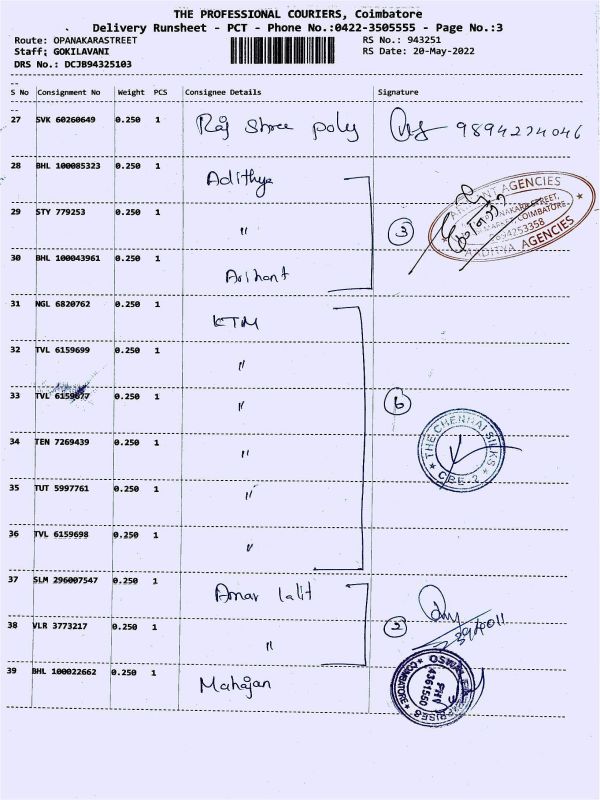 THE PROFESSIONAL COURIERS, Coimbatore
Delivery Runsheet - PCT - Phone No.:0422-3505555 - Page No.:3
Route: OPANAKARASTREET RS No.: 943251
Staff: GOKILAVANI RS Date: 20-May-2022
DRS No.: DCJB94325103
S No Consignment No Weight PCS Consignee Details Signature
27 SVK 60260649 0.250 1 Raj Shree poly 9894234046
28 BHL 100085323 0.250 1 Adithya
29 STY 779253 0.250 1 " 3
30 BHL 100043961 0.250 1 Arihant
AGENCIES
COIMBATORE
9894253358
AADITYA AGENCIES
31 NGL 6820762 0.250 1 KTM
32 TVL 6159699 0.250 1 "
33 TVL 6159677 0.250 1 " 6
34 TEN 7269439 0.250 1 "
THE CHENNAI SILKS
CBE-2
35 TUT 5997761 0.250 1 "
36 TVL 6159698 0.250 1 "
37 SLM 296007547 0.250 1 Amar lalit
38 VLR 3773217 0.250 1 "
39 BHL 100022662 0.250 1 Mahajan
COIMBATORE
PH:
4361550